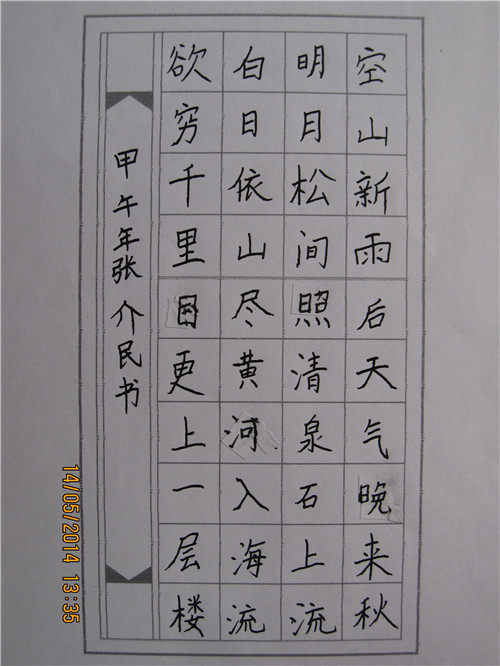 空山新雨后天气晚来秋
明月松间照清泉石上流
白日依山尽黄河入海流
欲穷千里目更上一层楼
甲午年张介民书
14/05/2014 13:35